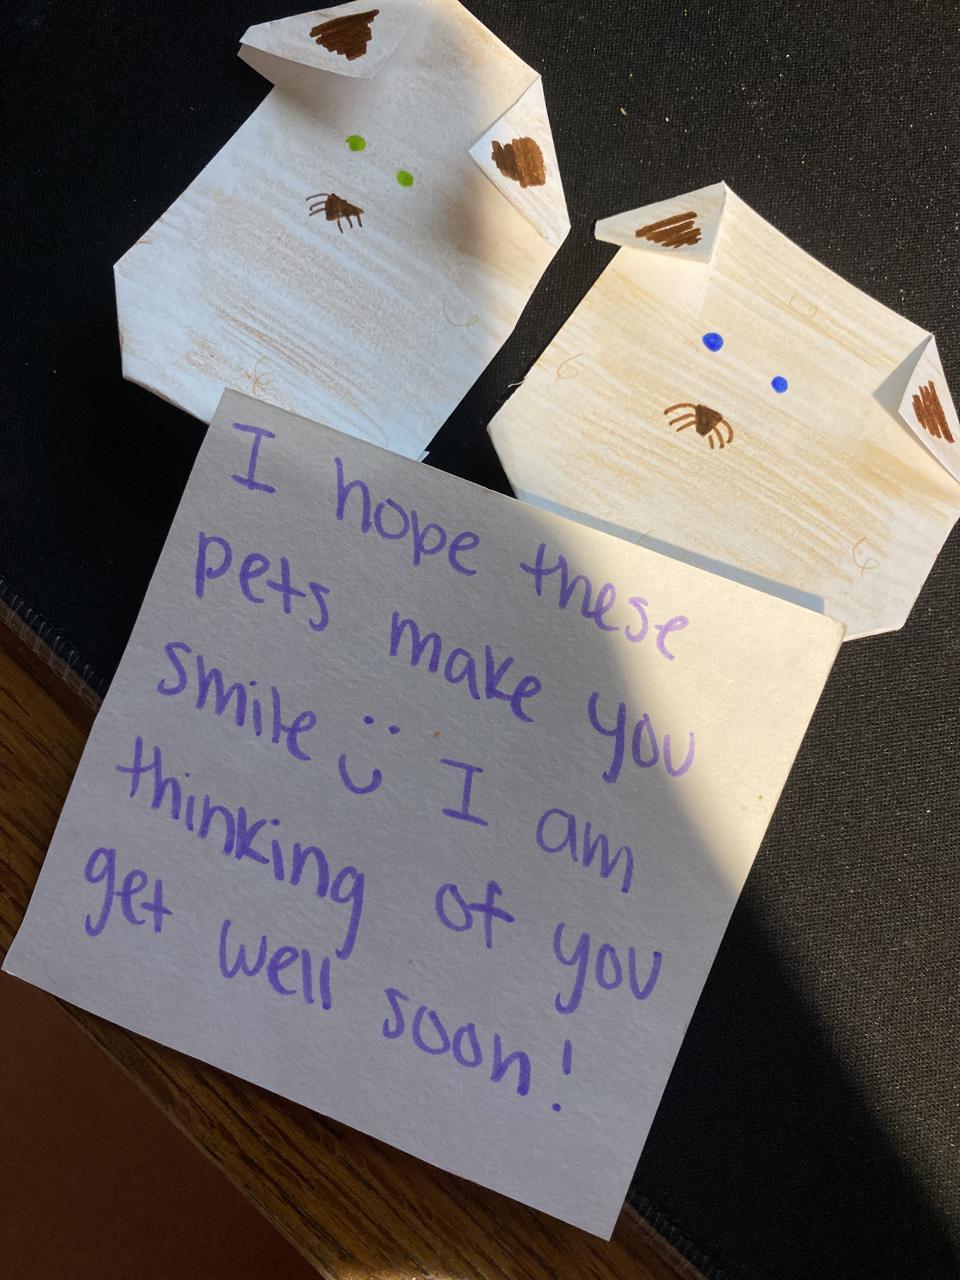 I hope these
pets make you
smile :) I am
thinking of you
get well soon!